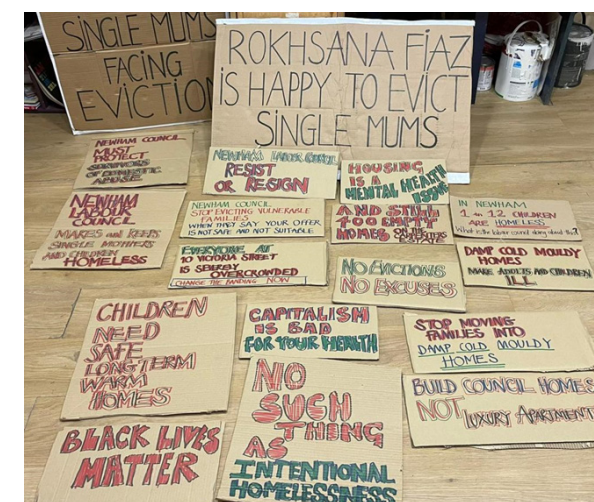 SINGLE MUMS
FACING
EVICTION
ROKHSANA FIAZ
IS HAPPY TO EVICT
SINGLE MUMS
NEWHAM COUNCIL
MUST
PROTECT
SURVIVORS
OF DOMESTIC
ABUSE
NEWHAM LABOUR COUNCIL
RESIST
OR RESIGN
HOUSING
IS A
MENTAL HEALTH
ISSUE
NEWHAM
LABOUR
COUNCIL
MAKES and KEEPS
SINGLE MOTHERS
AND CHILDREN
HOMELESS
NEWHAM COUNCIL
STOP EVICTING VULNERABLE
FAMILIES
WHEN THEY SAY YOUR OFFER
IS NOT SAFE AND NOT SUITABLE
AND STILL
400 EMPTY
HOMES ON THE
CARPENTERS
ESTATE
IN NEWHAM
1 in 12 CHILDREN
ARE HOMELESS
What is the labour council doing about this?
EVERYONE AT
10 VICTORIA STREET
IS
OVERCROWDED
CHANGE THE BANDING NOW
NO EVICTIONS
NO EXCUSES
DAMP COLD MOULDY
HOMES
MAKE ADULTS AND CHILDREN
ILL
CHILDREN
NEED
SAFE
LONG TERM
WARM
HOMES
CAPITALISM
IS BAD
FOR YOUR HEALTH
STOP MOVING
FAMILIES INTO
DAMP COLD MOULDY
HOMES
NO
SUCH
THING
AS
INTENTIONAL
HOMELESSNESS
BUILD COUNCIL HOMES
NOT LUXURY APARTMENT
BLACK LIVES
MATTER